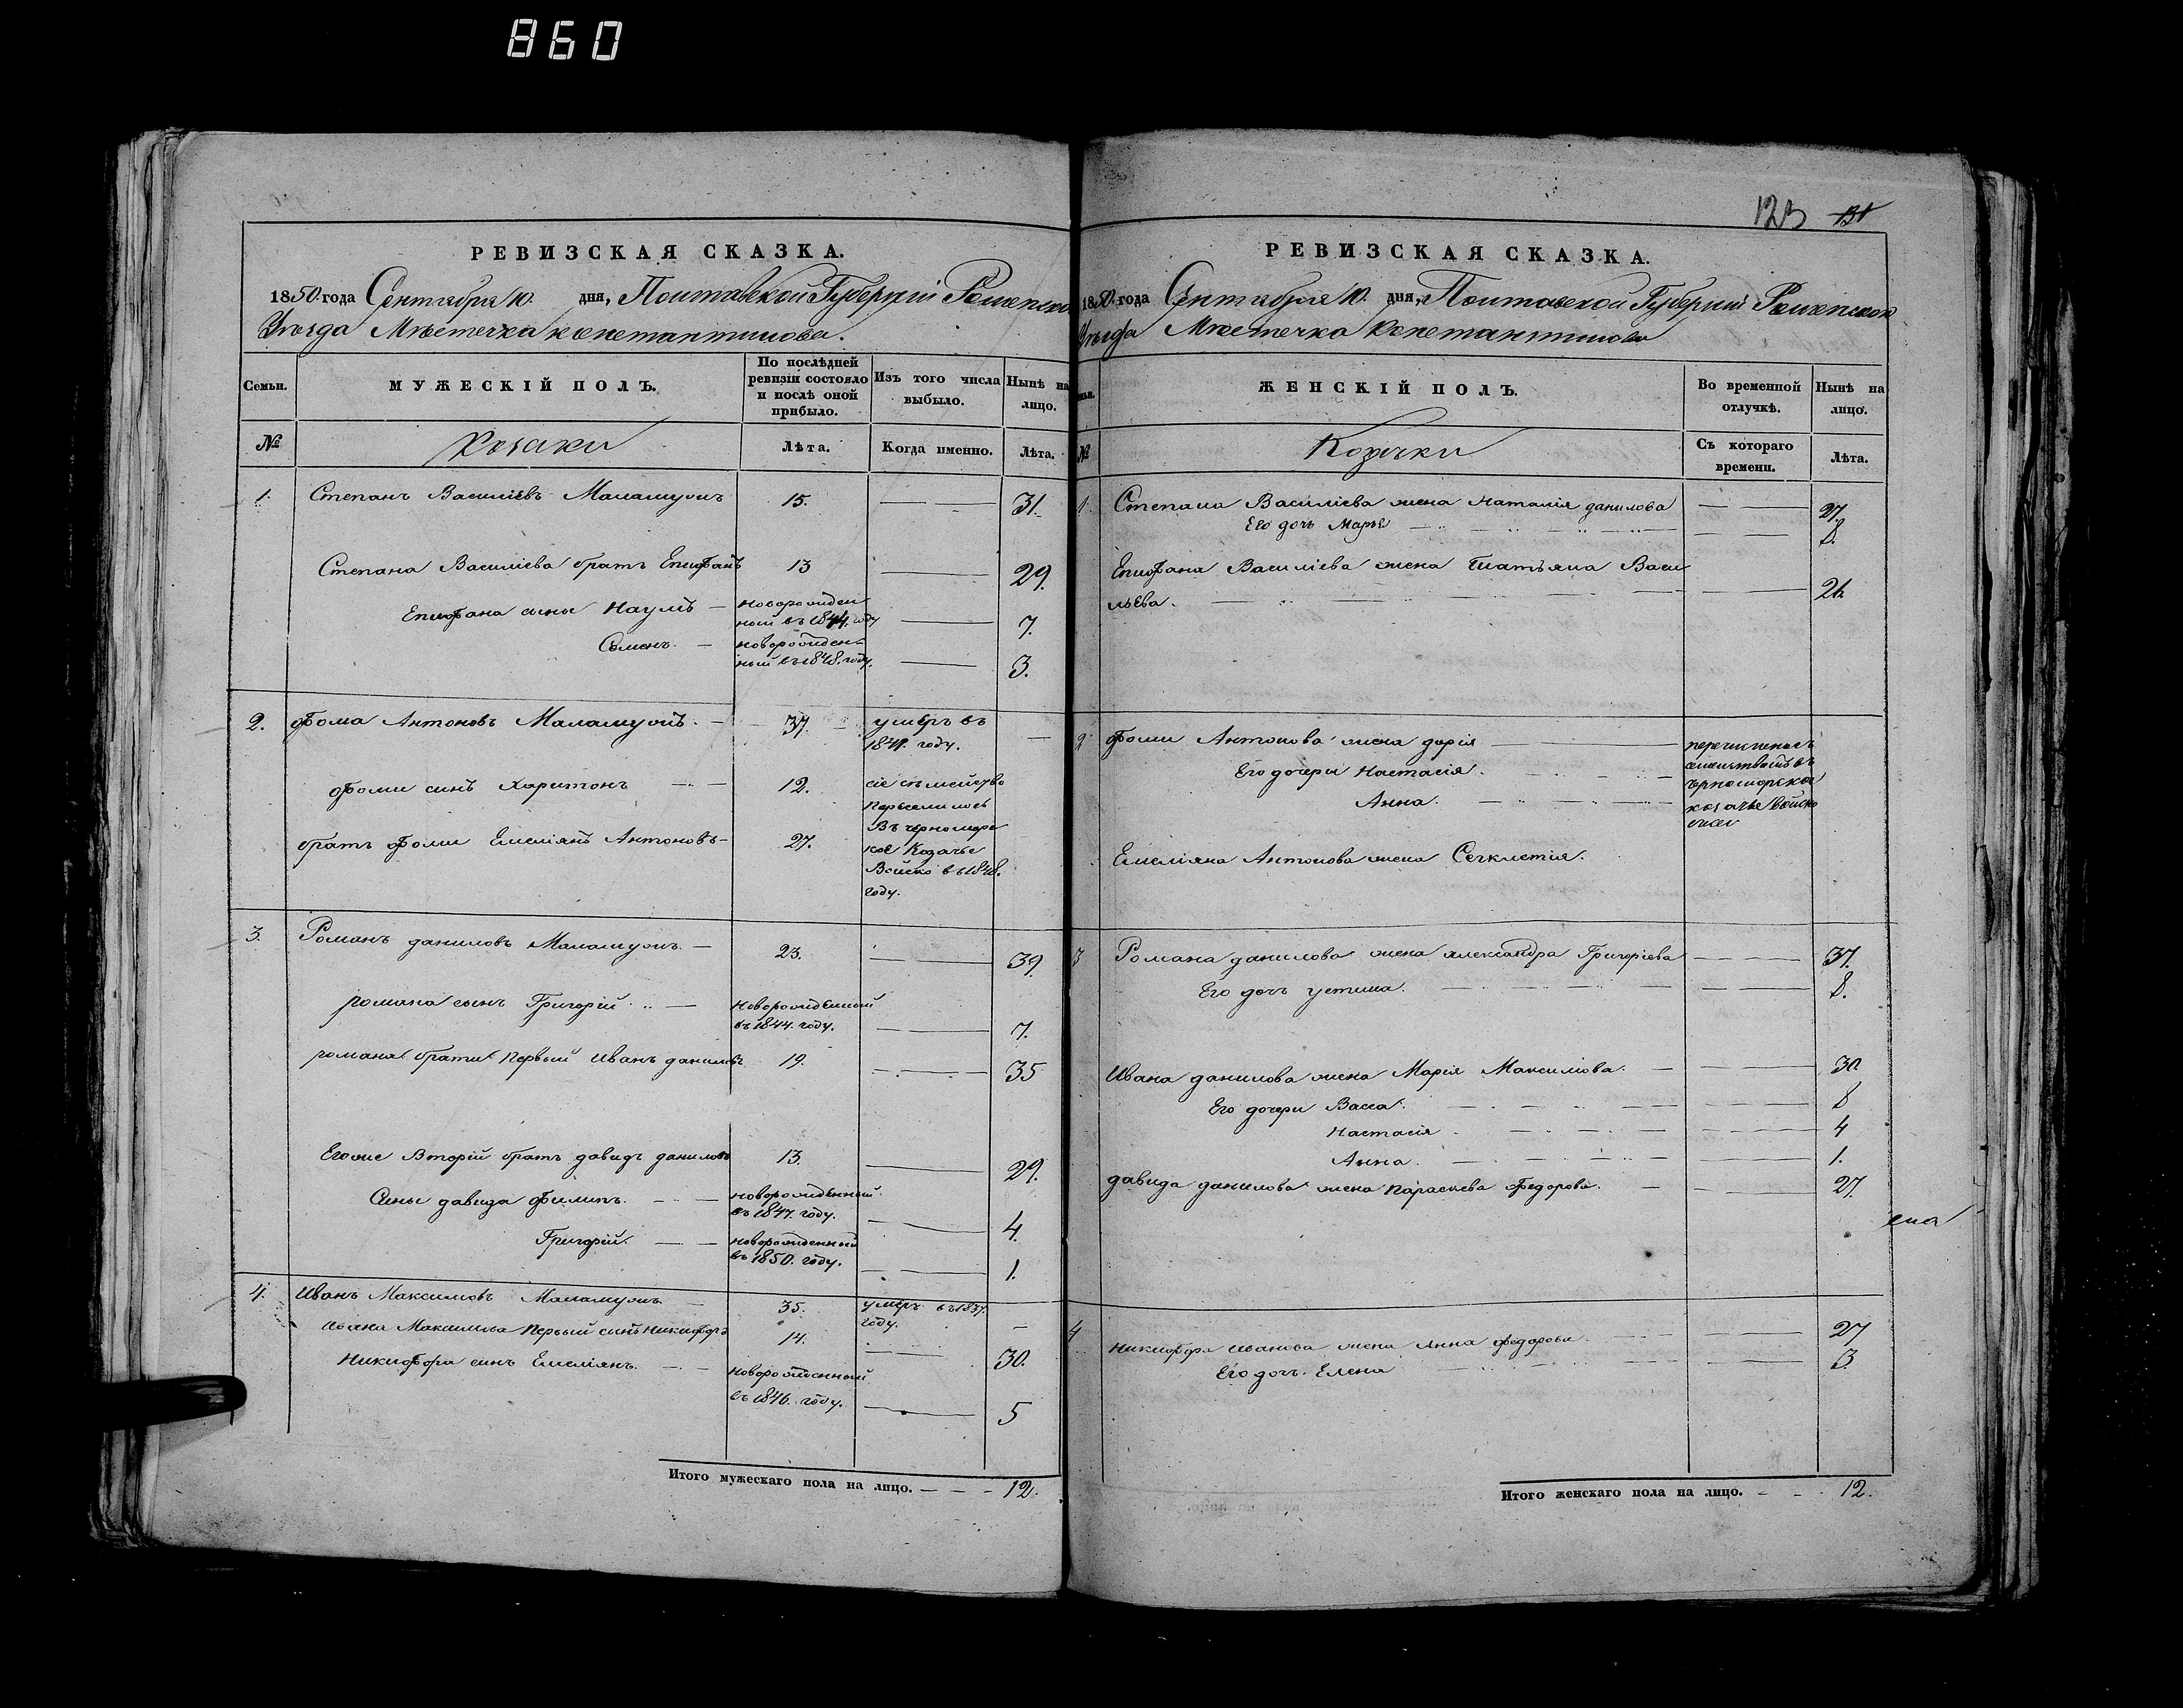 860
РЕВИЗСКАЯ СКАЗКА.
1850 года Сентября 10. дня, Полтавской Губерніи Роменско
Уѣзда Мѣстечка констатинова.
Семьи.
МУЖЕСКІЙ ПОЛЪ.
По послѣдней ревизіи состояло и послѣ оной прибыло.
Изъ того числа выбыло.
Нынѣ на лицо.
№
Козаки
Лѣта.
Когда именно.
Лѣта.
1. Степанъ Василіевъ 15. 31.
Степана Василіева братъ Епифанъ 13 29.
Епифана сыны Наумъ новорожден
ный въ 1844. году 7.
Семенъ. новорожден-
ный въ 1848. году. 3.
2. Фома Антоновъ 37. умеръ въ
году.
Фоми синъ Харитонъ 12. сіе съмейство
переселилось
Въ черномор
братъ Фоми Емеліянъ Антоновъ 27. кое Козачье
Войско въ 1848.
году.
3. Романъ даниловъ 23. 39.
романа сынъ Григорій новорожденный
въ 1844. году. 7.
романа братья первый иванъ даниловъ 19. 35
Егоже Вторій братъ давидъ даниловъ 13. 29.
Сины давида Филипъ. новорожденный
въ 1847. году. 4.
Григорій. новорожденный
въ 1850. году. 1.
4. иванъ Максимовъ 35. умеръ въ 1837.
году.
ивана Максимова первый синъ никифоръ 14. 30.
никифора синъ Емеліянъ. новорожденный
въ 1846. году. 5
Итого мужескаго пола на лицо. 12.
123 131
РЕВИЗСКАЯ СКАЗКА.
1850 года Сентября 10. дня, Полтавской Губерніи Роменской
Уѣзда Мѣстечка констатинова
ЖЕНСКІЙ ПОЛЪ.
Во временной отлучкѣ.
Нынѣ на лицо.
№
Козачки
Съ котораго времени.
Лѣта.
1. Степана Василіева жена наталія данилова 27.
Его дочь Марья 8.
Епифана Василіева жена татьяна Васи
льева. 26.
2 Фоми Антонова жена дарія
Его дочери настасія.
Анна.
черноморское
козачье войско
Емеліяна Антонова жена Секлетія.
3 Романа данилова жена александра Григоріева 37.
Его дочь устина. 8.
ивана данилова жена Марія Максимова. 30.
Его дочери Васса. 8
настасія 4
Анна. 1.
давида данилова жена параскева Федорова. 27.
4 никифора иванова жена анна федорова 27
Его дочь Елена 3.
Итого женскаго пола на лицо. 12.